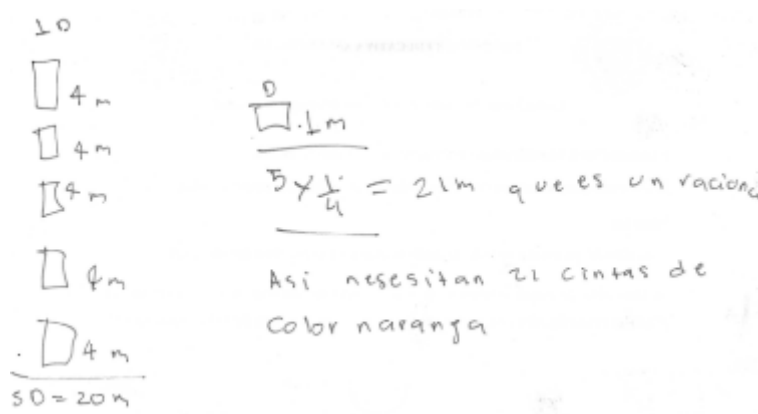 1D
4 m
4 m
4 m
4 m
4 m
5D = 20 m
D
.1m
5 y 1/4 = 21m que es un raciona
Asi nesesitan 21 cintas de
color naranga